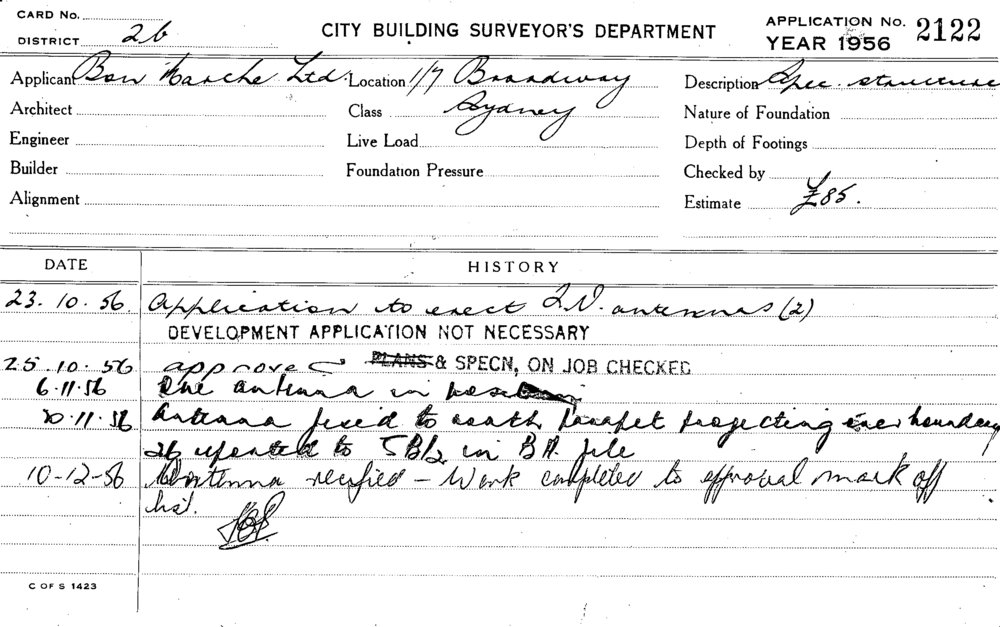 CARD No.
DISTRICT 26
CITY BUILDING SURVEYOR'S DEPARTMENT
APPLICATION No. 2122
YEAR 1956
Applicant Bon Marche Ltd. Location 1/7 Broadway Description Spec. structure
Architect Class Sydney Nature of Foundation
Engineer Live Load Depth of Footings
Builder Foundation Pressure Checked by
Alignment Estimate £85.
DATE HISTORY
23.10.56. Application to erect T.V. antennas (2)
DEVELOPMENT APPLICATION NOT NECESSARY
25.10.56 approved PLANS & SPECN, ON JOB CHECKED
6.11.56 One antenna in position
30.11.56 Antenna fixed to south parapet projecting over boundary
26 reported to SB/2 in BA. file
10-12-56 Antenna rectified - Work completed to approval mark off
list.
C OF S 1423